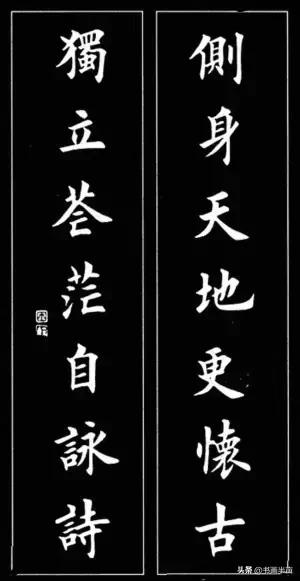 側身天地更懷古
獨立蒼茫自詠詩
头条 @书画